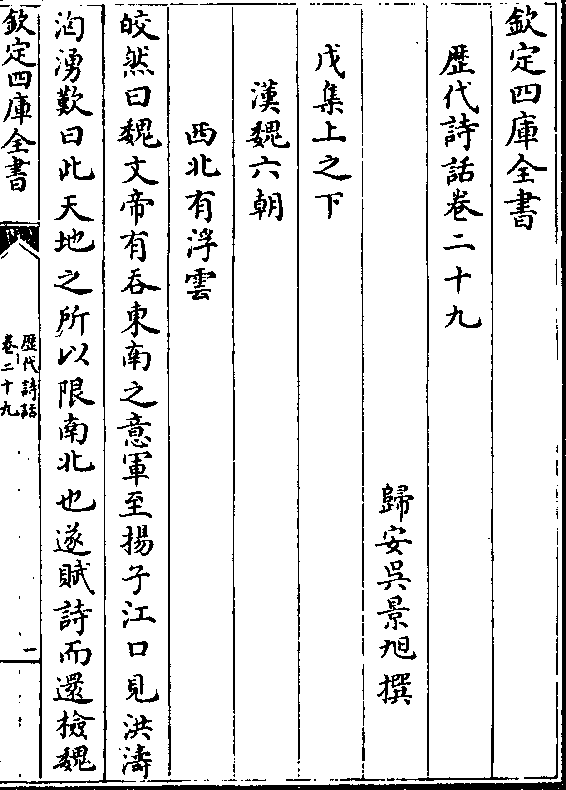 欽定四庫全書
歴代詩話卷二十九
歸安吳景旭撰
戊集上之下
漢魏六朝
西北有浮雲
皎然曰魏文帝有吞東南之意軍至揚子江口見洪濤
洶湧歎曰此天地之所以限南北也遂賦詩而還檢魏
欽定四庫全書
歴代詩話
卷二十九
一